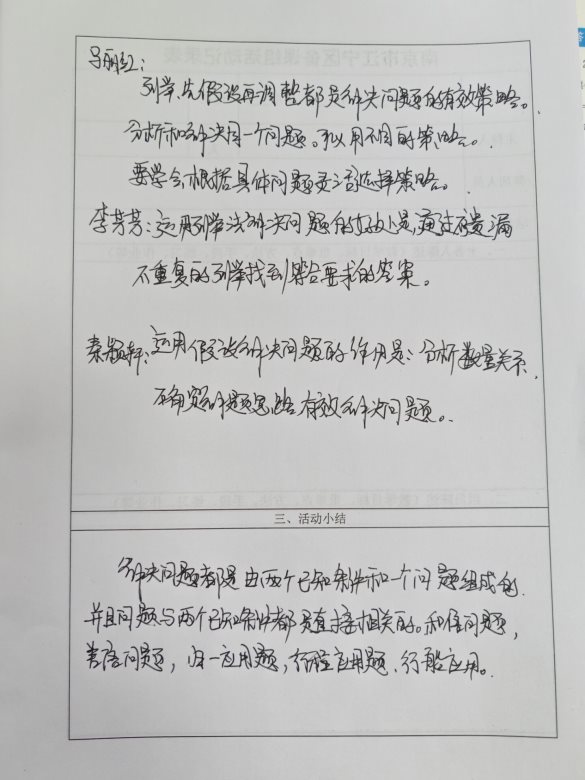 马丽红：
列举、先假设再调整都是解决问题的有效策略。
分析和解决同一个问题。可以用不同的策略。
要学会根据具体问题灵活选择策略。
李芳芳：运用列举法解决问题的好处是，通过不遗漏
不重复的列举找到符合要求的答案。
秦：运用假设解决问题的作用是：分析数量关系，
确定解题思路有效解决问题。
三、活动小结
解决问题都是由两个已知条件和一个问题组成的，
并且问题与两个已知条件都是直接相关的。和倍问题，
差倍问题，归一应用题，行程应用题、行船应用。